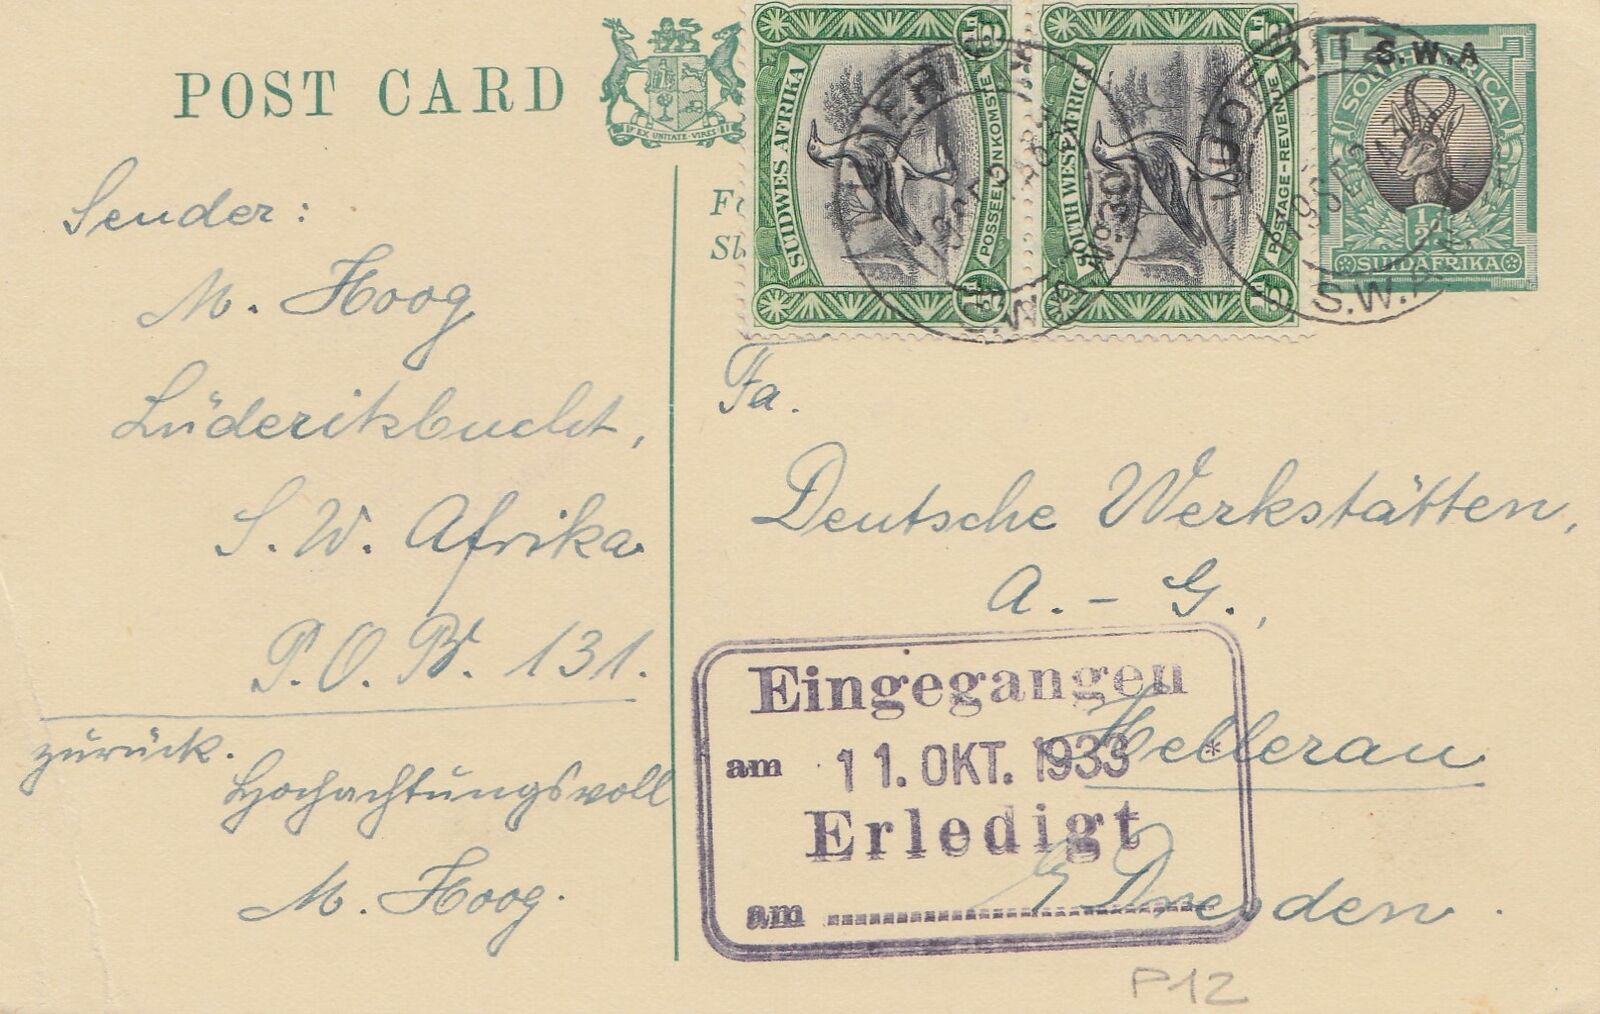 POST CARD
EX UNITATE VIRES
SUIDWES AFRIKA
POSSEËL-INKOMSTE
½d
SOUTH WEST AFRICA
POSTAGE-REVENUE
½d
S.W.A
SOUTH AFRICA
½D
SUIDAFRIKA
LUDERITZ
S.W.A.
Sender:
M. Hoog
Lüderitzbucht,
S. W. Afrika
P.O.B. 131.
zurück.
Hochachtungsvoll
M. Hoog.
Fa.
Deutsche Werkstätten,
A.-G.,
Hellerau
Dresden.
Eingegangen
am 11. OKT. 1933 *
Erledigt
am
P12